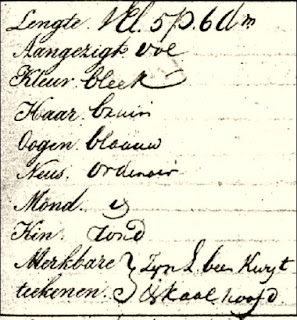 Lengte. 1 El. 5 p. 6 dm
Aangezigt. ovl
Kleur. bleek
Haar. bruin
Oogen. blaauw
Neus. ordinair
Mond. "
Kin. rond
Merkbare } Zyn L. been Kwyt
teekenen. } & kaal hoofd